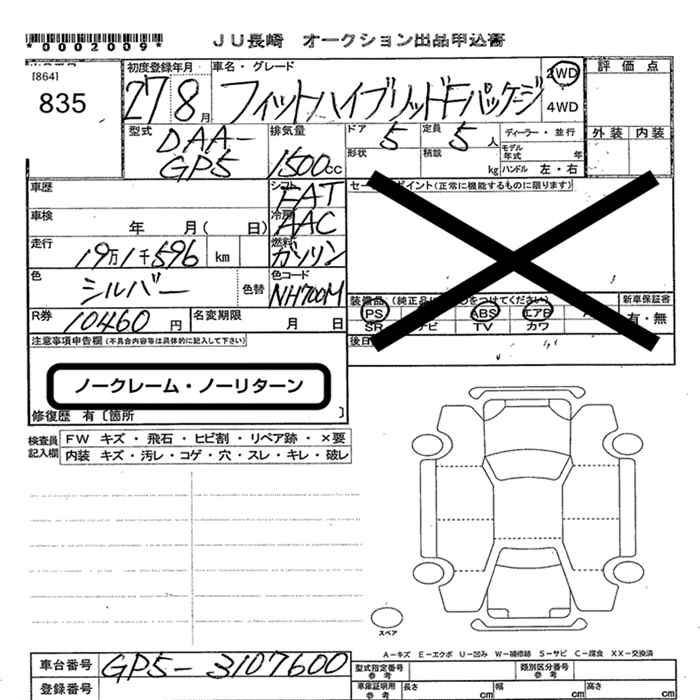 *0002009*
JU長崎 オークション出品申込書
[864]
835
初度登録年月
27 8月
車名・グレード
フィットハイブリッドFパッケージ
2WD
4WD
評価点
外装 内装
型式
DAA-
GP5
排気量
1500cc
ドア 5
定員 5人
形状
積載
kg
ディーラー・並行
モデル年式 年
ハンドル 左・右
車歴
シフト
FAT
車検
年 月( 日)
冷房
AAC
走行
19万1千596 km
燃料
ガソリン
色
シルバー
色替
色コード
NH700M
R券
10460円
名変期限
月 日
セー ポイント(正常に機能するものに限ります)
装備品(純正品に をつけてください)
新車保証書
PS
ABS
エアB
有・無
SR
ナビ
TV
カワ
後日
注意事項申告欄(不具合内容等は具体的に記入して下さい)
ノークレーム・ノーリターン
修復歴 有〔箇所 〕
検査員記入欄
FW キズ・飛石・ヒビ割・リペア跡・×要
内装 キズ・汚レ・コゲ・穴・スレ・キレ・破レ
スペア
A-キズ E-エクボ U-凹み W-補修跡 S-サビ C-腐食 XX-交換済
車台番号
GP5-3107600
登録番号
型式指定番号
参考
類別区分番号
参考
車庫証明用
参考
長さ cm
幅 cm
高さ cm